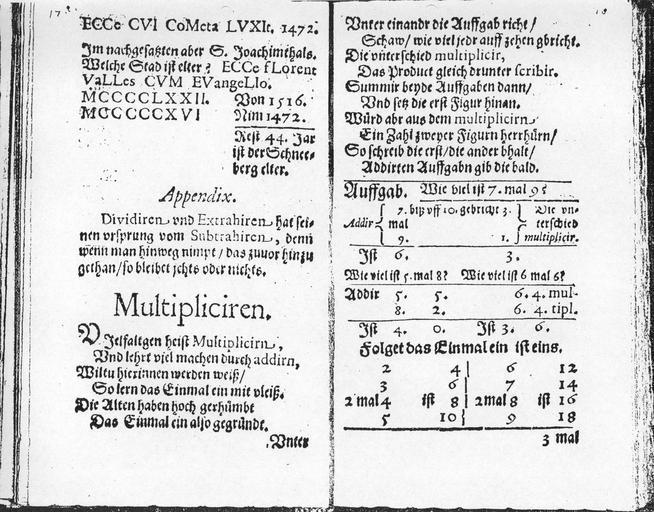 17
ECCe CVI CoMeta LVXIt. 1472.
Im nachgesatzten aber S. Joachimsthals.
Welche Stad ist elter? ECCe fLorent
VaLLes CVM EVangeLIo.
MCCCCLXXII. Von 1516.
MCCCCCXVI Nim 1472.
Rest 44. Jar
ist der Schnee-
berg elter.
Appendix.
Dividiren vnd Extrahiren hat sei-
nen vrsprung vom Subtrahiren, denn
wenn man hinweg nimpt / das zuuor hinzu
gethan / so bleibet jchts oder nichts.
Multipliciren.
VJelfaltgen heist Multiplicirn,
Vnd lehrt viel machen durch addirn,
Wiltu hierinnen werden weiß /
So lern das Einmal ein mit vleiß.
Die Alten haben hoch gerhümbt
Das Einmal ein also gegründt.
Vnter
18
Vnter einandr die Auffgab richt /
Schaw / wie viel jedr auff zehen gbricht.
Die vnterschied multiplicir,
Das Product gleich drunter scribir.
Summir beyde Auffgaben dann /
Vnd setz die erst Figur hinan.
Würd abr aus dem multiplicirn
Ein Zahl zweyer Figurn herrhürn /
So schreib die erst / die ander bhalt /
Addirten Auffgabn gib die bald.
Auffgab. Wie viel ist 7. mal 9?
7. biß vff 10. gebricht 3. Die vn-
Addir mal terschied
9. 1. multiplicir.
Ist 6. 3.
Wie viel ist 5. mal 8? Wie viel ist 6 mal 6?
Addir 5. 5. 6. 4. mul-
8. 2. 6. 4. tipl.
Ist 4. 0. Ist 3. 6.
Folget das Einmal ein ist eins.
2 4 6 12
3 6 7 14
2 mal 4 ist 8 2 mal 8 ist 16
5 10 9 18
3 mal